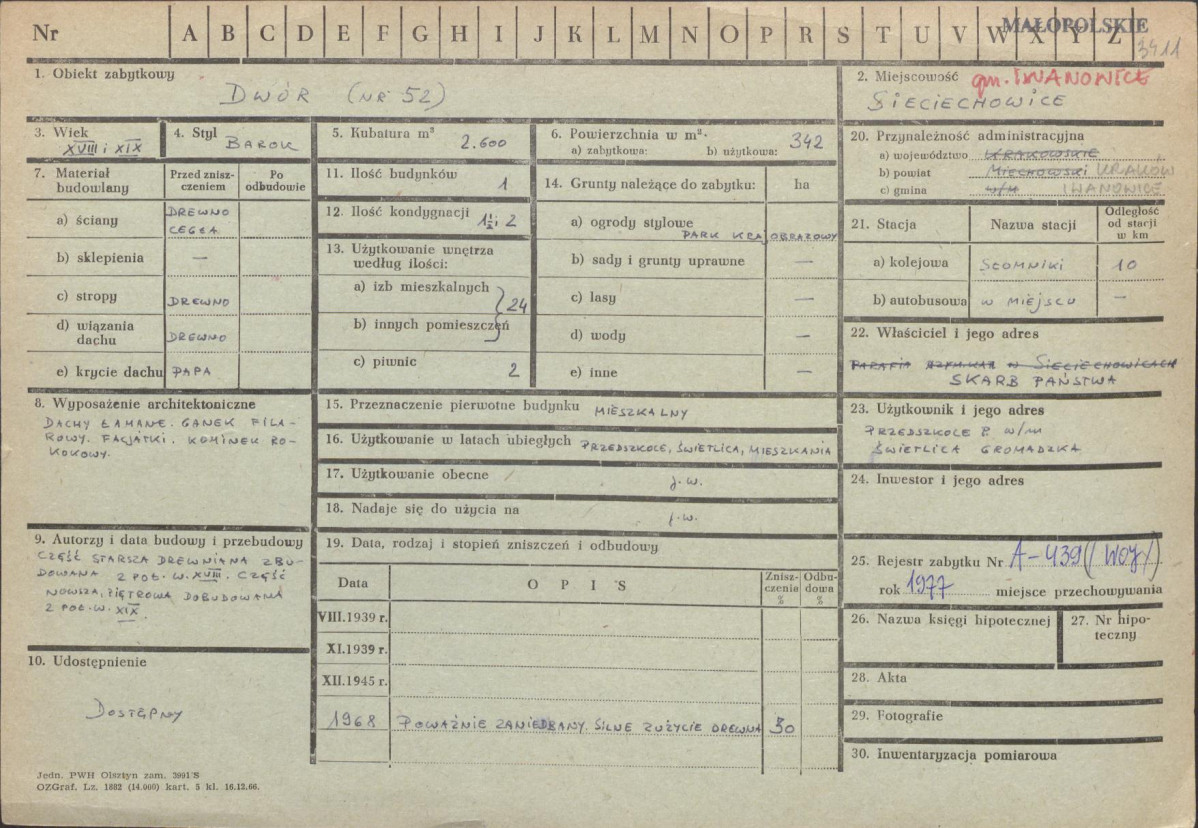 Nr A B C D E F G H I J K L M N O P R S T U V W X Y Z
MAŁOPOLSKIE
3411
1. Obiekt zabytkowy
DWÓR (NR 52)
2. Miejscowość gm. IWANOWICE
SIECIECHOWICE
3. Wiek
XVIII i XIX
4. Styl
BAROK
5. Kubatura m³
2.600
6. Powierzchnia w m²·
a) zabytkowa: b) użytkowa: 342
7. Materiał budowlany
Przed zniszczeniem
Po odbudowie
a) ściany DREWNO CEGŁA
b) sklepienia —
c) stropy DREWNO
d) wiązania dachu DREWNO
e) krycie dachu PAPA
8. Wyposażenie architektoniczne
DACHY ŁAMANE. GANEK FILA-
ROWY. FACJATKI. KOMINEK RO-
KOKOWY.
9. Autorzy i data budowy i przebudowy
CZĘŚĆ STARSZA DREWNIANA ZBU-
DOWANA 2 POŁ. W. XVIII. CZĘŚĆ
NOWSZA, PIĘTROWA DOBUDOWANA
2 POŁ. W. XIX.
10. Udostępnienie
DOSTĘPNY
11. Ilość budynków 1
12. Ilość kondygnacji 1½ i 2
13. Użytkowanie wnętrza
według ilości:
a) izb mieszkalnych
24
b) innych pomieszczeń
c) piwnic 2
14. Grunty należące do zabytku: ha
a) ogrody stylowe
PARK KRAJOBRAZOWY
b) sady i grunty uprawne —
c) lasy —
d) wody —
e) inne —
15. Przeznaczenie pierwotne budynku MIESZKALNY
16. Użytkowanie w latach ubiegłych PRZEDSZKOLE, ŚWIETLICA, MIESZKANIA
17. Użytkowanie obecne j.w.
18. Nadaje się do użycia na j.w.
19. Data, rodzaj i stopień zniszczeń i odbudowy
Data
O P I S
Zniszczenia %
Odbudowa %
VIII.1939 r.
XI.1939 r.
XII.1945 r.
1968 POWAŻNIE ZANIEDBANY. SILNE ZUŻYCIE DREWNA 30
20. Przynależność administracyjna
a) województwo KRAKOWSKIE
b) powiat MIECHOWSKI KRAKÓW
c) gmina w/m IWANOWICE
21. Stacja
Nazwa stacji
Odległość od stacji w km
a) kolejowa SŁOMNIKI 10
b) autobusowa W MIEJSCU —
22. Właściciel i jego adres
PARAFIA w SIECIECHOWICACH
SKARB PAŃSTWA
23. Użytkownik i jego adres
PRZEDSZKOLE P. w/m
ŚWIETLICA GROMADZKA
24. Inwestor i jego adres
25. Rejestr zabytku Nr A-439 (woj)
rok 1977 miejsce przechowywania
26. Nazwa księgi hipotecznej
27. Nr hipoteczny
28. Akta
29. Fotografie
30. Inwentaryzacja pomiarowa
Jedn. PWH Olsztyn zam. 3991/S
OZGraf. Lz. 1882 (14.000) kart. 5 kl. 16.12.66.